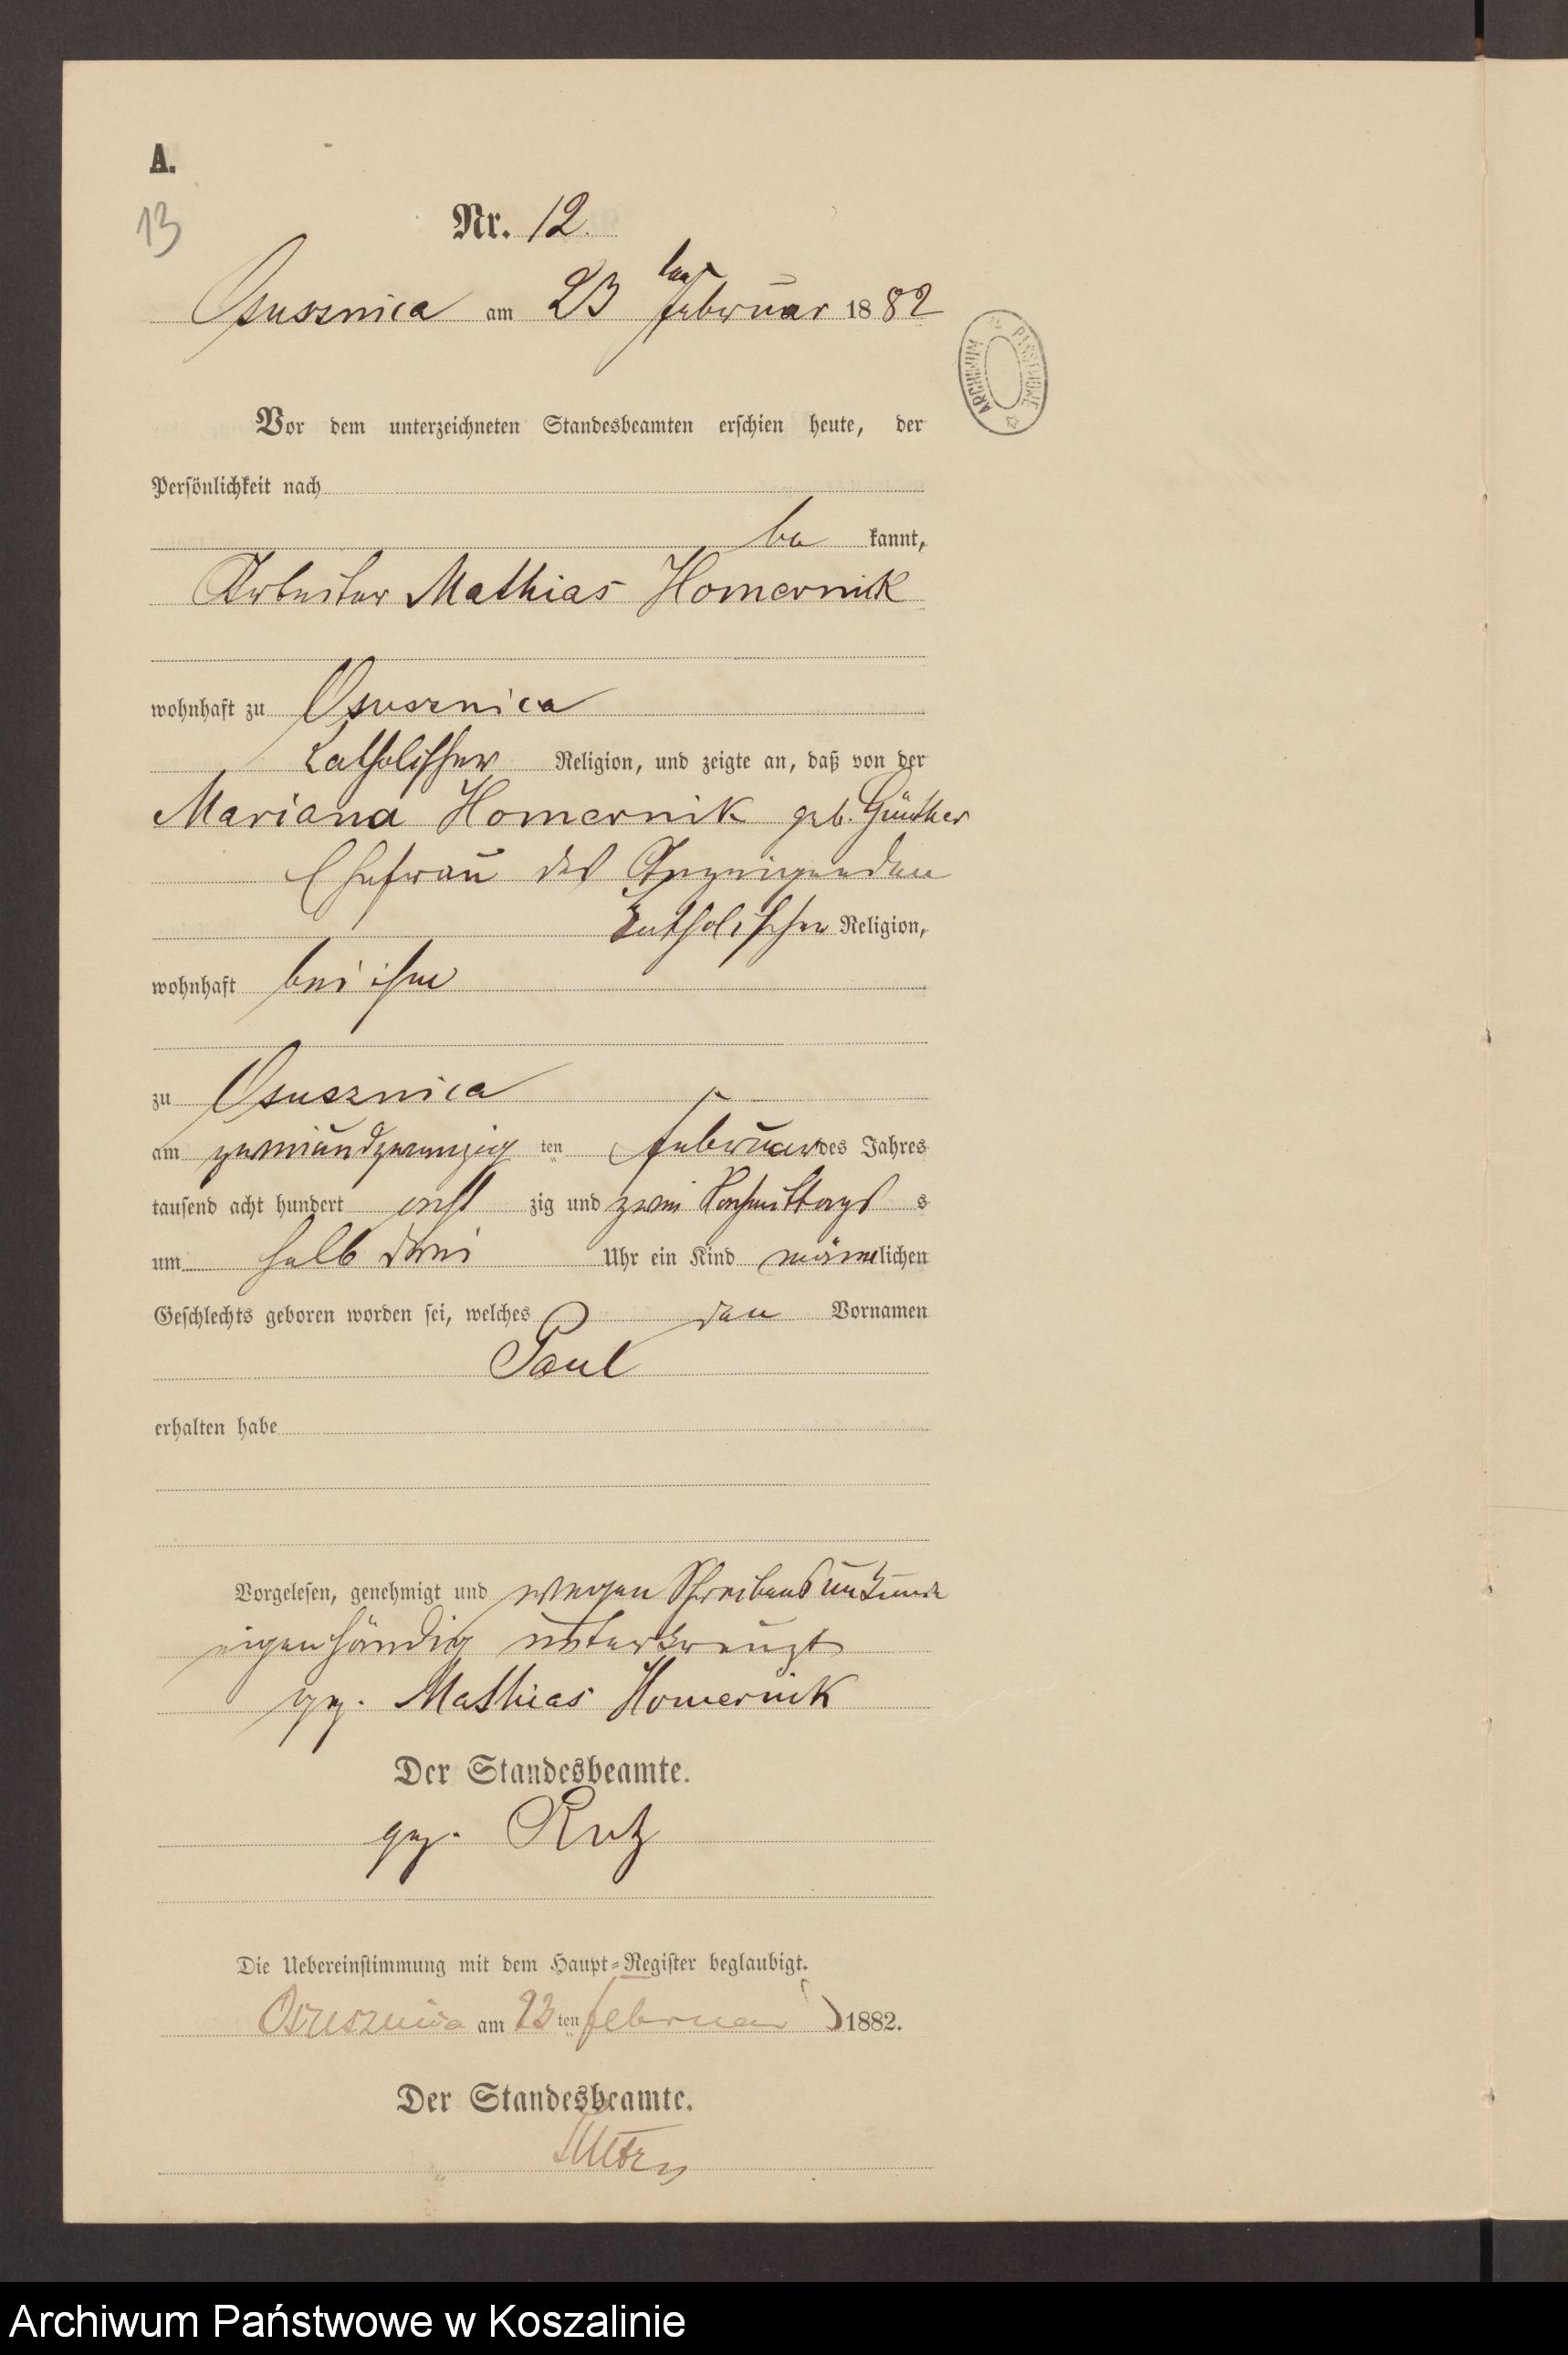 A.
13
Nr. 12.
Osusznica am 23 ten Februar 1882
ARCHIWUM PAŃSTWOWE
Vor dem unterzeichneten Standesbeamten erschien heute, der
Persönlichkeit nach
be kannt,
Arbeiter Mathias Homernik
wohnhaft zu Osusznica
katholischer Religion, und zeigte an, daß von der
Mariana Homernik geb. Günther
Ehefrau des Anzeigenden
katholischer Religion,
wohnhaft bei ihm
zu Osusznica
am zweiundzwanzig ten Februar des Jahres
tausend acht hundert acht zig und zwei Nachmittags s
um halb drei Uhr ein Kind männlichen
Geschlechts geboren worden sei, welches den Vornamen
Paul
erhalten habe
Vorgelesen, genehmigt und wegen Schreibensunkunde
eigenhändig unterkreuzt
gez. Mathias Homernik
Der Standesbeamte.
gez. Rutz
Die Uebereinstimmung mit dem Haupt-Register beglaubigt.
Osusznica am 23 ten Februar 1882.
Der Standesbeamte.
Archiwum Państwowe w Koszalinie